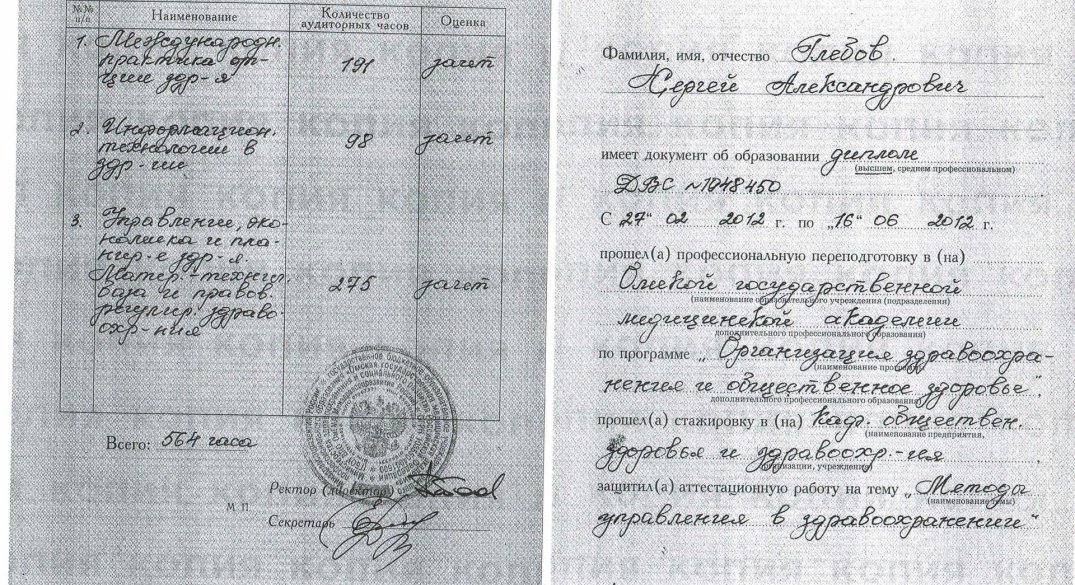 №№ п/п Наименование Количество аудиторных часов Оценка
1. Международн.
практика ор-
ции здр-я 191 зачет
2. Информацион.
технологии в 98 зачет
здр-нии
3. Управление, эко-
номика и пла-
нир-е здр-я.
Матер.-технич. 275 зачет
база и правов.
регулир. здраво-
охр-ния
Всего: 564 часа
Ректор (директор)
М П
Секретарь
Фамилия, имя, отчество Глебов
Сергей Александрович
имеет документ об образовании диплом
(высшем, среднем профессиональном)
ДВС №1048450
С 27" 02 2012 г. по „16" 06 2012 г.
прошел(а) профессиональную переподготовку в (на)
Омской государственной
(наименование образовательного учреждения (подразделения)
медицинской академии
дополнительного профессионального образования)
по программе „Организация здравоохра-
(наименование программы
нения и общественное здоровье"
дополнительного профессионального образования)
прошел(а) стажировку в (на) каф. обществен.
(наименование предприятия,
здоровья и здравоохр.-ия
организации, учреждения)
защитил(а) аттестационную работу на тему „Методы
(наименование темы)
управления в здравоохранении"